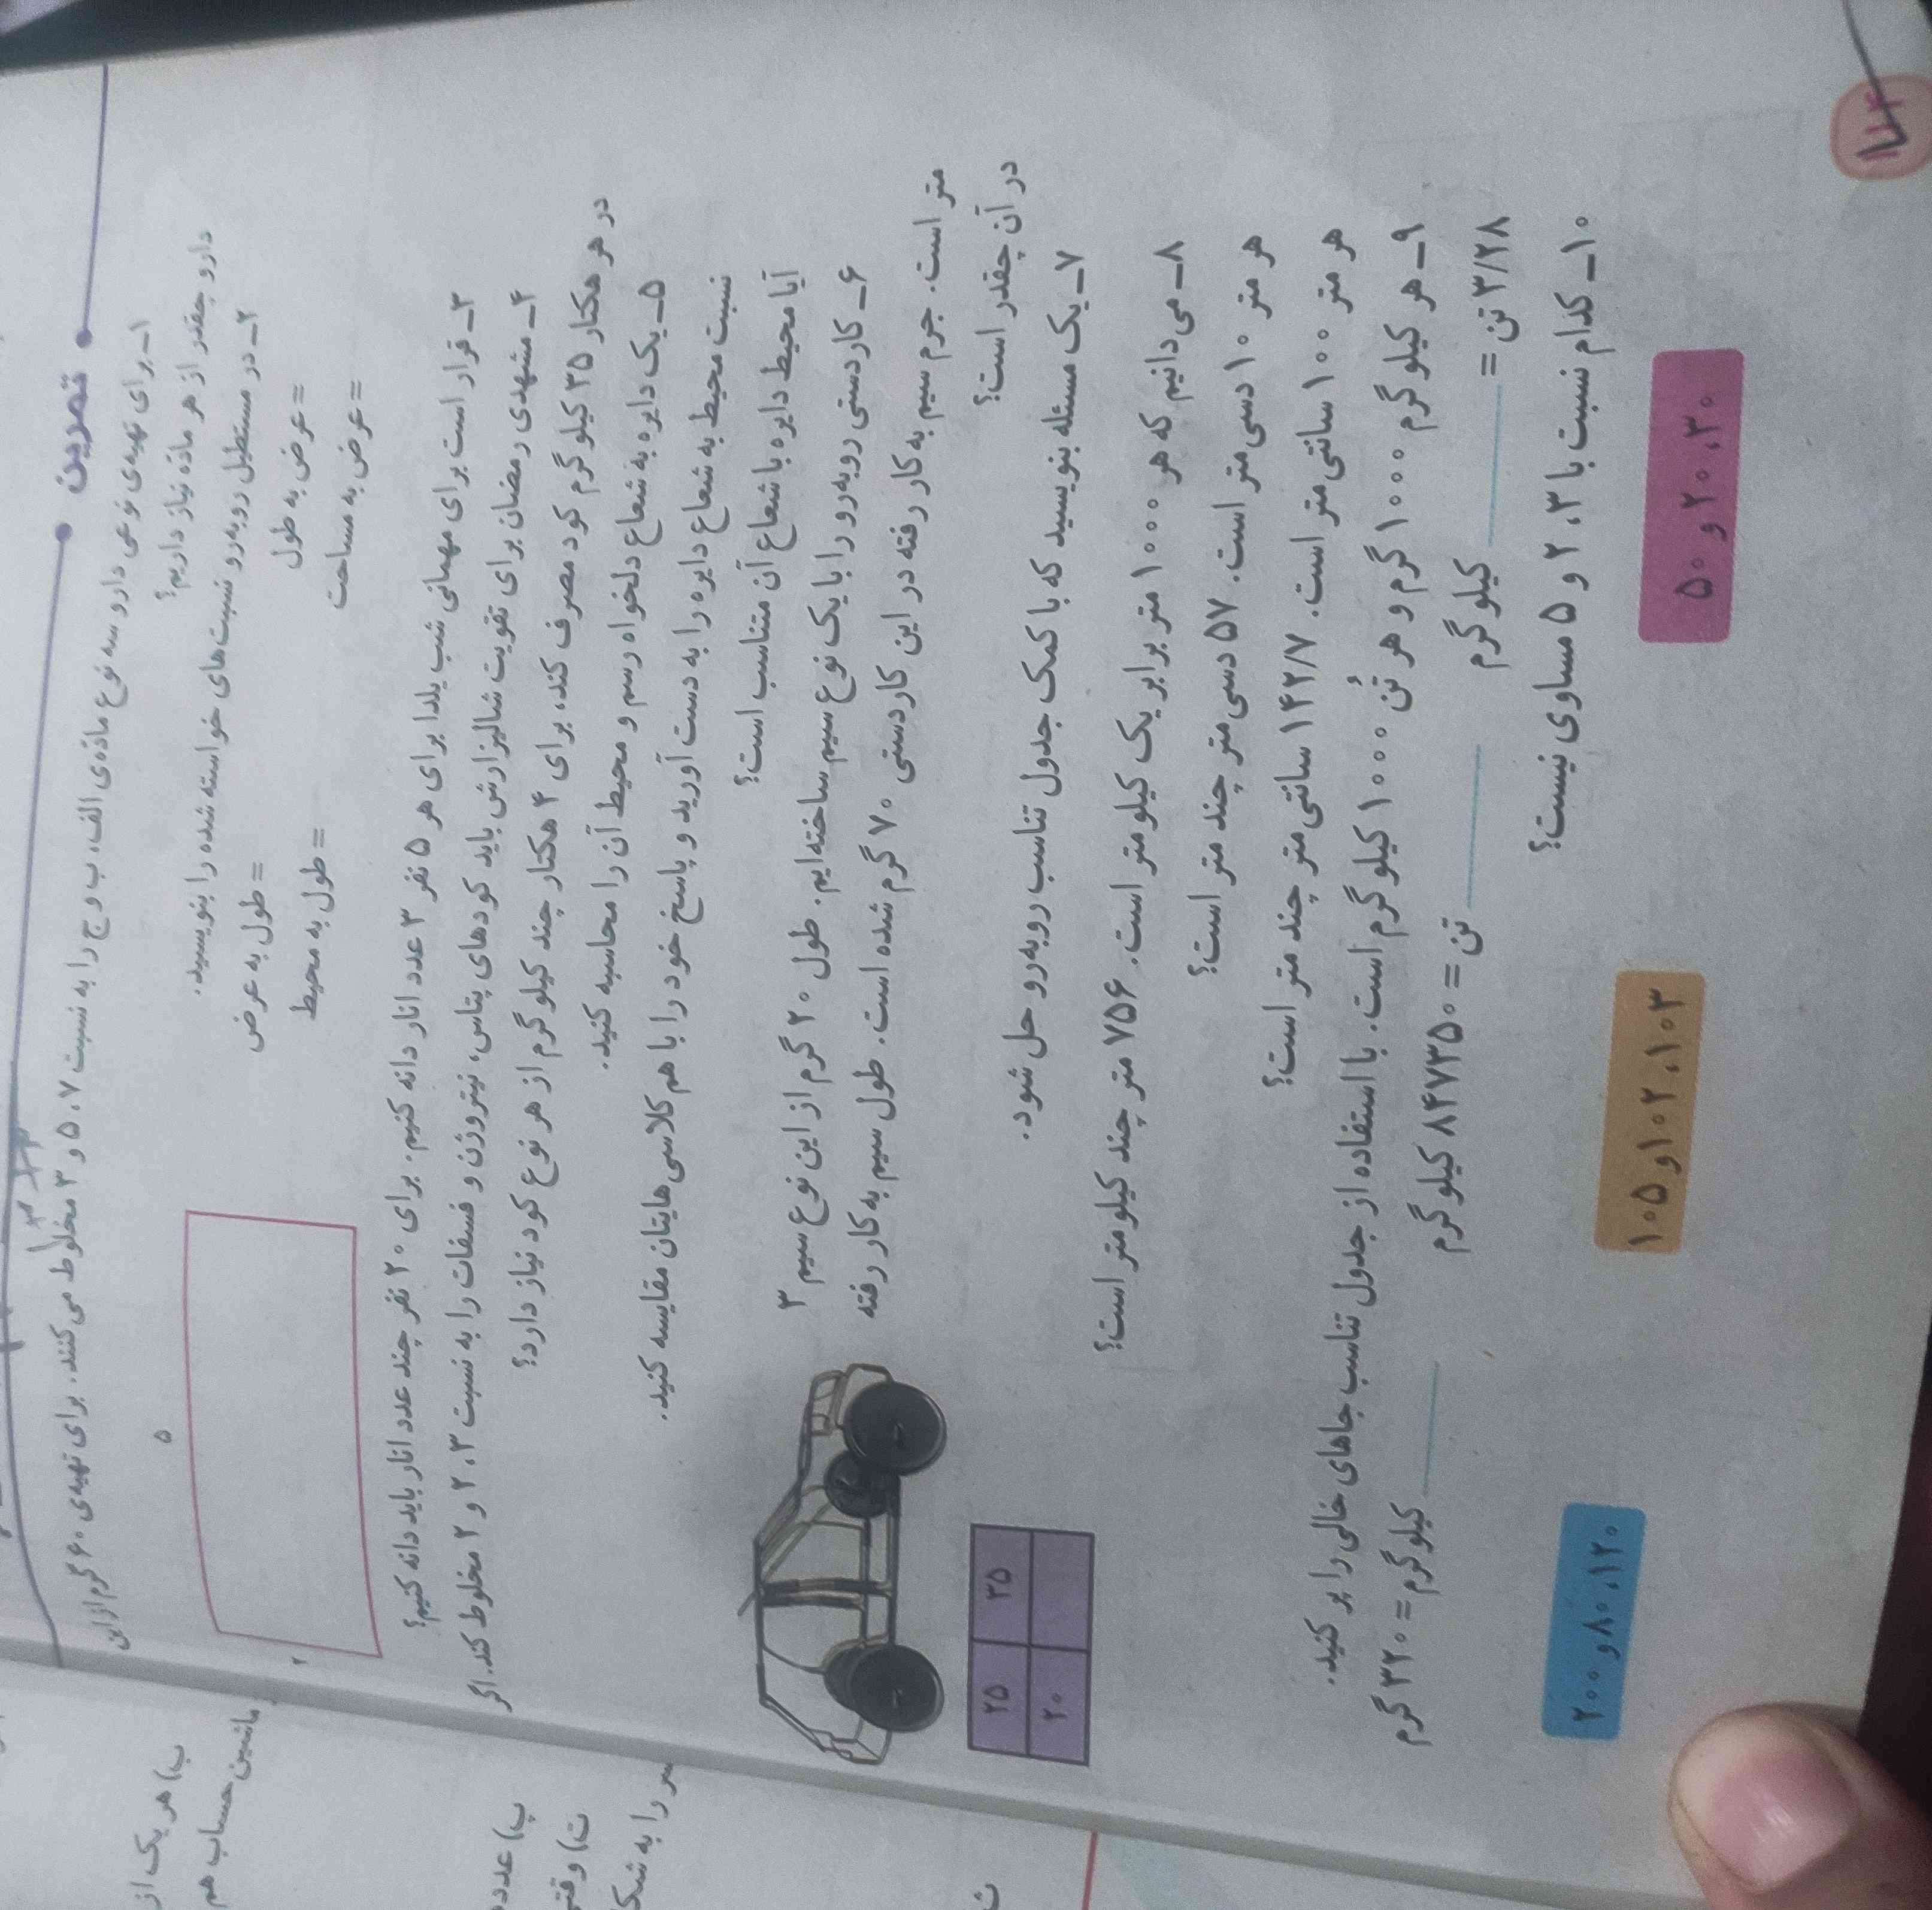 تمرین
۱ــ برای تهیه‌ی نوعی دارو سه نوع ماده‌ی الف، ب و ج را به نسبت ۷، ۵ و ۳ مخلوط می‌کنند. برای تهیه‌ی ۶۰ گرم از این
دارو چقدر از هر ماده نیاز داریم؟
۲ــ در مستطیل روبه‌رو نسبت‌های خواسته شده را بنویسید.
= طول به عرض
= عرض به طول
= طول به محیط
= عرض به مساحت
۵
۲
۳ــ قرار است برای مهمانی شب یلدا برای هر ۵ نفر ۳ عدد انار دانه کنیم. برای ۲۰ نفر چند عدد انار باید دانه کنیم؟
۴ــ مشهدی رمضان برای تقویت شالیزارش باید کودهای پتاس، نیتروژن و فسفات را به نسبت ۳، ۲ و ۲ مخلوط کند. اگر
در هر هکتار ۳۵ کیلوگرم کود مصرف کند، برای ۴ هکتار چند کیلوگرم از هر نوع کود نیاز دارد؟
۵ــ یک دایره به شعاع دلخواه رسم و محیط آن را محاسبه کنید.
نسبت محیط به شعاع دایره را به دست آورید و پاسخ خود را با هم‌کلاسی‌هایتان مقایسه کنید.
آیا محیط دایره با شعاع آن متناسب است؟
۶ــ کاردستی روبه‌رو را با یک نوع سیم ساخته‌ایم. طول ۲۰ گرم از این نوع سیم ۳
متر است. جرم سیم به کار رفته در این کاردستی ۷۰ گرم شده است. طول سیم به کار رفته
در آن چقدر است؟
۷ــ یک مسئله بنویسید که با کمک جدول تناسب روبه‌رو حل شود.
۲۵ ۳۵
۲۰
۸ــ می‌دانیم که هر ۱۰۰۰ متر برابر یک کیلومتر است. ۷۵۶ متر چند کیلومتر است؟
هر متر ۱۰ دسی‌متر است. ۵۷ دسی‌متر چند متر است؟
هر متر ۱۰۰ سانتی‌متر است. ۱۴۲/۷ سانتی‌متر چند متر است؟
۹ــ هر کیلوگرم ۱۰۰۰ گرم و هر تُن ۱۰۰۰ کیلوگرم است. با استفاده از جدول تناسب جاهای خالی را پر کنید.
کیلوگرم ــــــ = ۳/۲۸ تن
تن ــــــ = ۸۴۷۳۵۰ کیلوگرم
کیلوگرم ــــــ = ۳۲۰ گرم
۱۰ــ کدام نسبت با ۳، ۲ و ۵ مساوی نیست؟
۳۰، ۲۰ و ۵۰
۱۰۳، ۱۰۲ و ۱۰۵
۱۲۰، ۸۰ و ۲۰۰
ب) هر یک از
ماشین حساب هم
پ) عدد